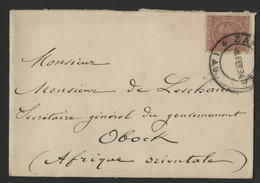 Monsieur
Monsieur de Leschaux
Secrétaire général du gouvernement
Obock
(Afrique orientale)